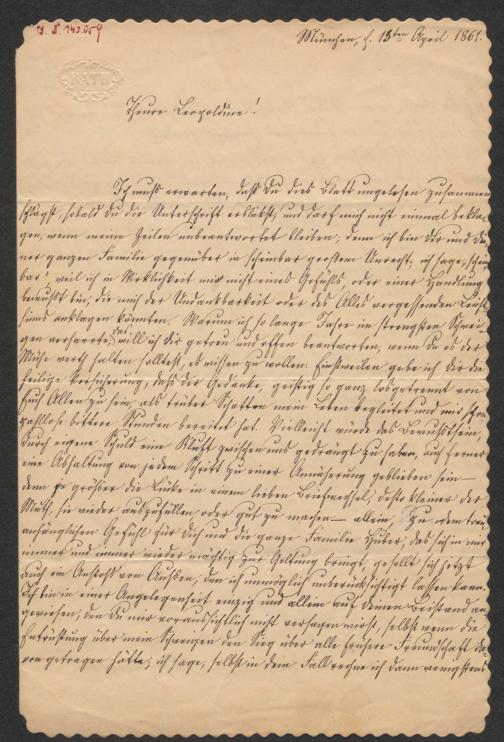 München, d. 13ten April 1861.
BATH
Theure Leopoldine!
Ich muß erwarten, daß Du dies Blatt ungelesen zusammen
schlägst, sobald Du die Unterschrift erblickst, und darf mich nicht einmal bekla-
gen, wenn meine Zeilen unbeantwortet bleiben, denn ich bin Dir und Dei-
ner ganzen Familie gegenüber in scheinbar großem Unrecht, ich sage, schein-
bar! weil ich in Wirklichkeit mir nicht eines Gefühls, oder einer Handlung
bewußt bin, die mich der Undankbarkeit oder des Alles vergessenden Leicht-
sinns anklagen könnten. Warum ich so lange Jahre im strengsten Schwei-
gen verharrte, das will ich Dir getreu und offen beantworten, wenn Du es der
Mühe werth halten solltest, es wissen zu wollen. Einstweilen gebe ich Dir die
heilige Versicherung, daß der Gedanke, geistig so ganz losgetrennt von
Euch Allen zu sein, als trüber Schatten mein Leben begleitet und mir schon
zahllose bittere Stunden bereitet hat. Vielleicht würde das Bewußtsein,
durch eigene Schuld eine Kluft zwischen uns gedrängt zu haben, auch ferner
eine Abhaltung von jedem Schritt zu einer Annäherung geblieben sein —
denn je größer die Lücke in einem lieben Briefwechsel, desto kleiner der
Muth, sie wieder auszufüllen oder gut zu machen — allein, zu dem treu
anhänglichen Gefühl für Dich und die ganze Familie Huber, das sich in mir
immer und immer wieder mächtig zur Geltung bringt, gesellt sich jetzt
auch ein Anstoß von Außen, den ich unmöglich unberücksichtigt lassen kann.
Ich bin in einer Angelegenheit einzig und allein auf Deinen Beistand an-
gewiesen, den Du mir voraussichtlich nicht versagen wirst, selbst wenn die
Entrüstung über mein Schweigen den Sieg über alle frühere Freundschaft da-
von getragen hätte; ich sage, selbst in dem Fall rechne ich dann wenigstens